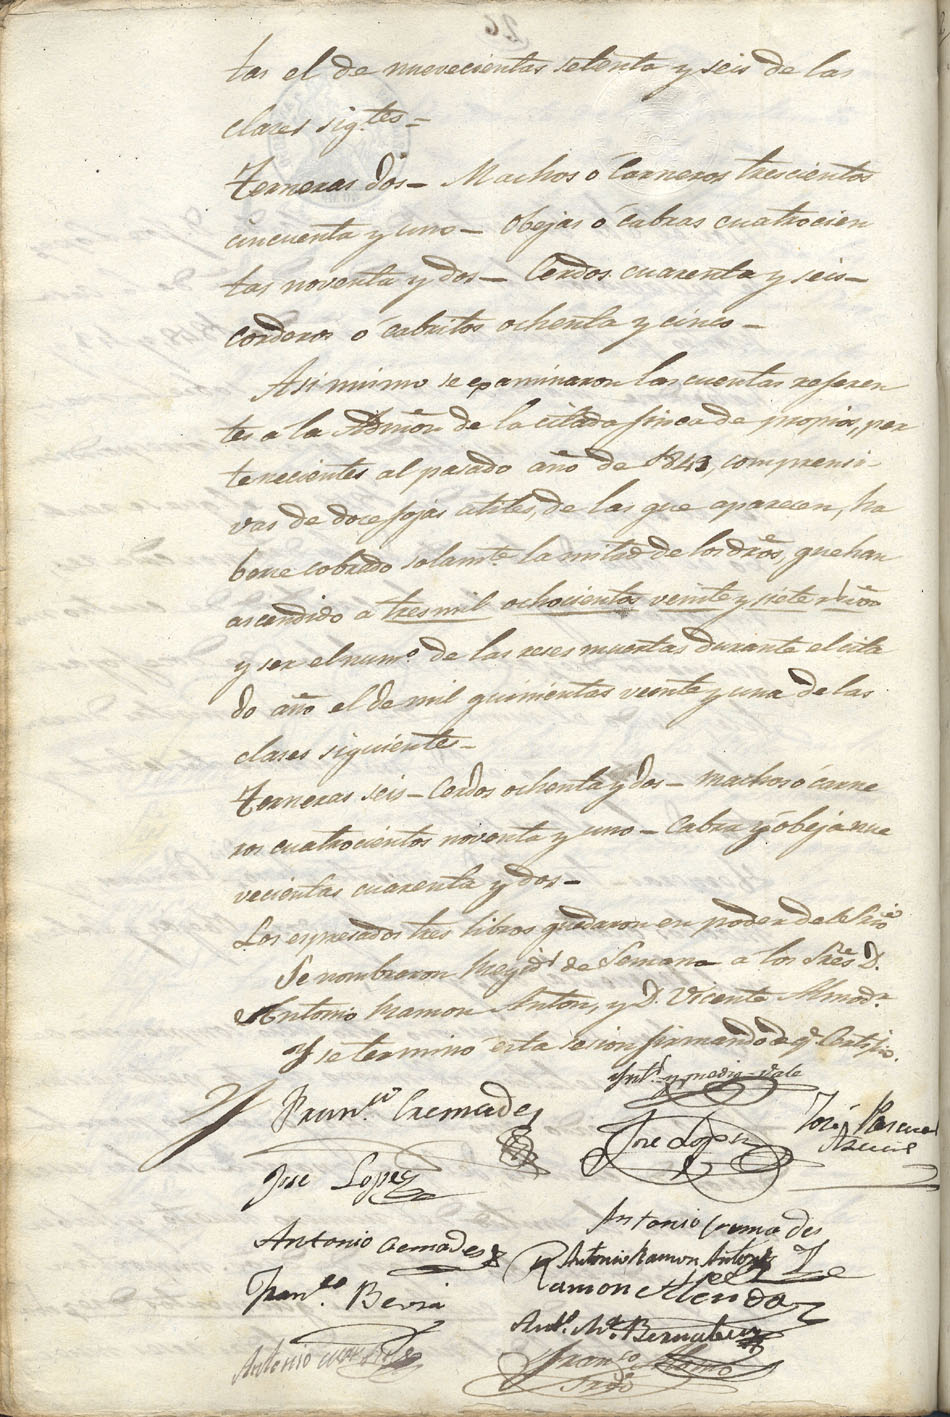 tas el de nuevecientas setenta y seis de las
clases sig.tes =
Terneras dos - Machos ó Carneros trescientos
cincuenta y uno - Obejas ó cabras cuatrocien
tas noventa y dos - Cerdos cuarenta y seis -
corderos ó cabritos ochenta y cinco -
Asi mismo se examinaron las cuentas referen
tes a la Admon de la citada finca de propios, per
tenecientes al pasado año de 1843, comprensi-
vas de doce fojas utiles, de las que aparecen, ha
berse cobrado solam.te la mitad de los dros, que han
ascendido a tres mil ochocientos veinte y siete r.s
y ser el num.o de las reses muertas durante el cita
do año el de mil quinientas veinte y una de las
clases siguientes -
Terneras seis - Cerdos ochenta y dos - machos o carne
ros cuatrocientos noventa y uno - Cabras y obejas nue
vecientas cuarenta y dos -
Los espresados tres libros quedaron en poder del Srio
Se nombraron Regid.s de Semana a los Sres D.
Antonio Ramon Anton, y D. Vicente Almod.r
Y se terminó esta sesion firmando de q.e Certifico.
y media - Vale
Fran.co Cremades
Jose Lopez
José Pascual
Jose Lopez
Antonio Cremades
Antonio Cremades
Antonio Ramon Anton
Fran.co Bevia
Ramon Alenda
Ant.o M.a Bernabeu
Antonio
Fran.co
Srio